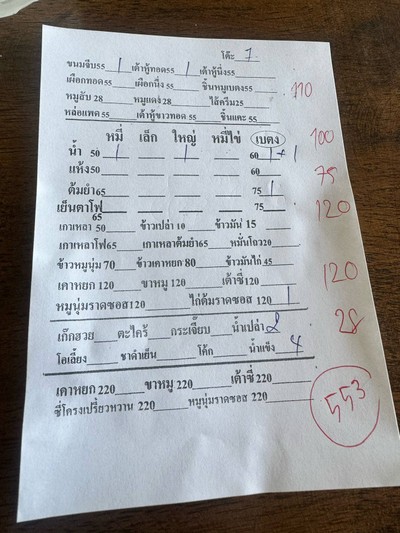 โต๊ะ 7
ขนมจีบ55 1 เต้าหู้ทอด55 1 เต้าหู้นิ่ง55
เผือกทอด55 เผือกนึ่ง55 ชิ้นหมูเบตง55 110
หมูสับ 28 หมูแดง 28 ไส้ครีม25
หล่อแพด55 เต้าหู้ขาวทอด 55 ชิ้นแคะ 55
หมี่ เล็ก ใหญ่ หมี่ไข่ เบตง 100
น้ำ 50 1 1 60 1+1
แห้ง50 60 75
ต้มยำ65 75 1
เย็นตาโฟ 65 75 120
เกาเหลา 50 ข้าวเปล่า 10 ข้าวมัน 15
เกาเหลาโฟ65 เกาเหลาต้มยำ65 หมั่นโถว20
ข้าวหมูนุ่ม 70 ข้าวเคาหยก 80 ข้าวมันไก่ 45
เคาหยก 120 ขาหมู 120 เต้าซี่120 120
หมูนุ่มราดซอส120 ไก่ต้มราดซอส 120 1
เก๊กฮวย ตะไคร้ กระเจี๊ยบ น้ำเปล่า 2 28
โอเลี้ยง ชาดำเย็น โค้ก น้ำแข็ง 4
เคาหยก 220 ขาหมู 220 เต้าซี่ 220
ซี่โครงเปรี้ยวหวาน 220 หมูนุ่มราดซอส 220 553